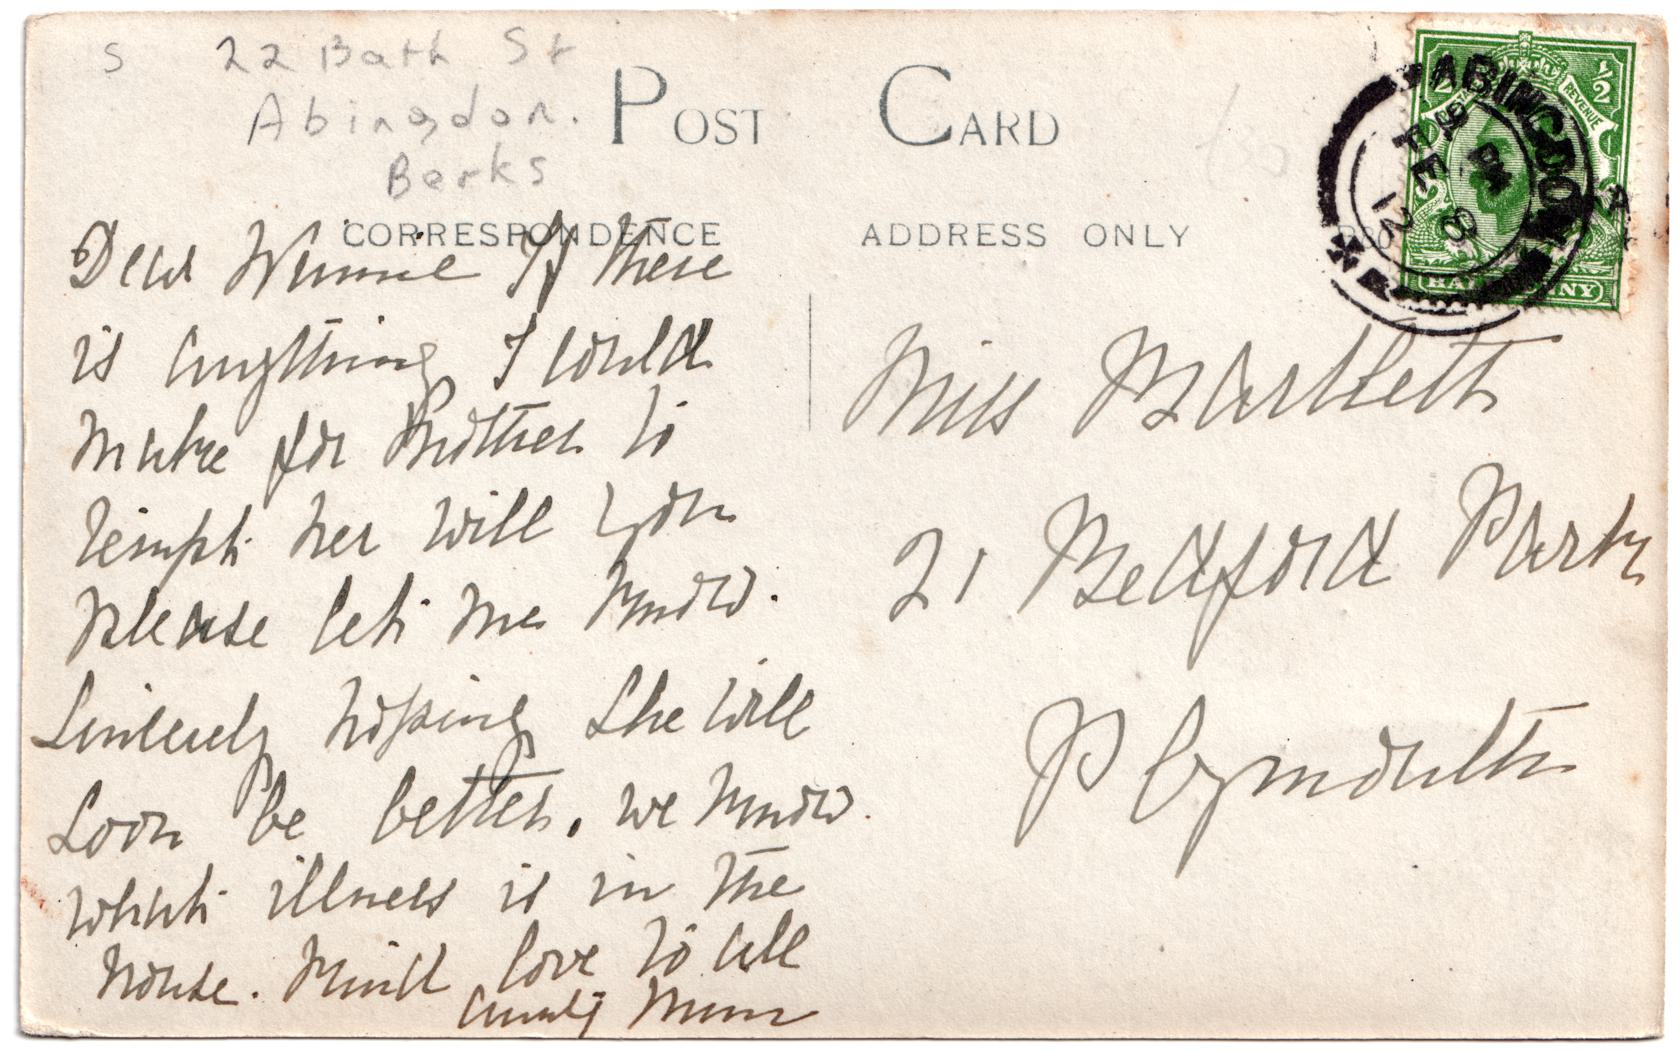 S 22 Bath St
Abingdon.
Berks
POST CARD
CORRESPONDENCE
ADDRESS ONLY
Dear Winnie If there
is anything I could
make for Mother to
tempt her will you
please let me know.
Sincerely hoping she will
soon be better. we know
what illness is in the
house. Kind love to all
Aunty Mum
Miss Bartlett
21 Bedford Park
Plymouth
ABINGDON
PM
FE 8
12
½
REVENUE
HALFPENNY